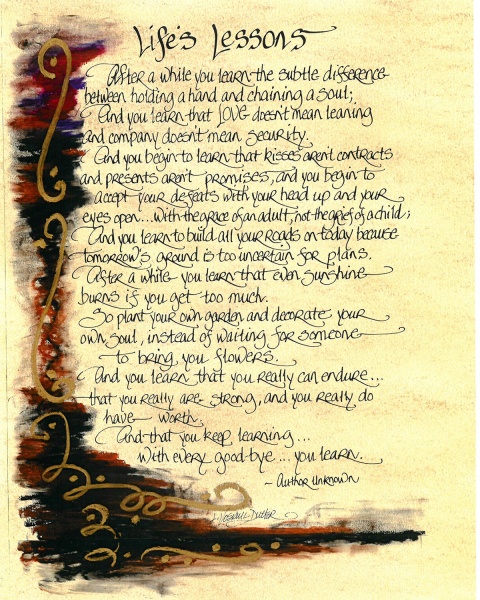 Life's Lessons
After a while you learn the subtle difference
between holding a hand and chaining a soul;
And you learn that LOVE doesn't mean leaning
and company doesn't mean security.
And you begin to learn that kisses aren't contracts
and presents aren't promises, and you begin to
accept your defeats with your head up and your
eyes open...with the grace of an adult, not the grief of a child;
And you learn to build all your roads on today because
tomorrow's ground is too uncertain for plans.
After a while you learn that even sunshine
burns if you get too much.
So plant your own garden and decorate your
own soul, instead of waiting for someone
to bring you flowers.
And you learn that you really can endure...
that you really are strong, and you really do
have worth;
And that you keep learning...
With every good-bye...you learn.
~ Author Unknown